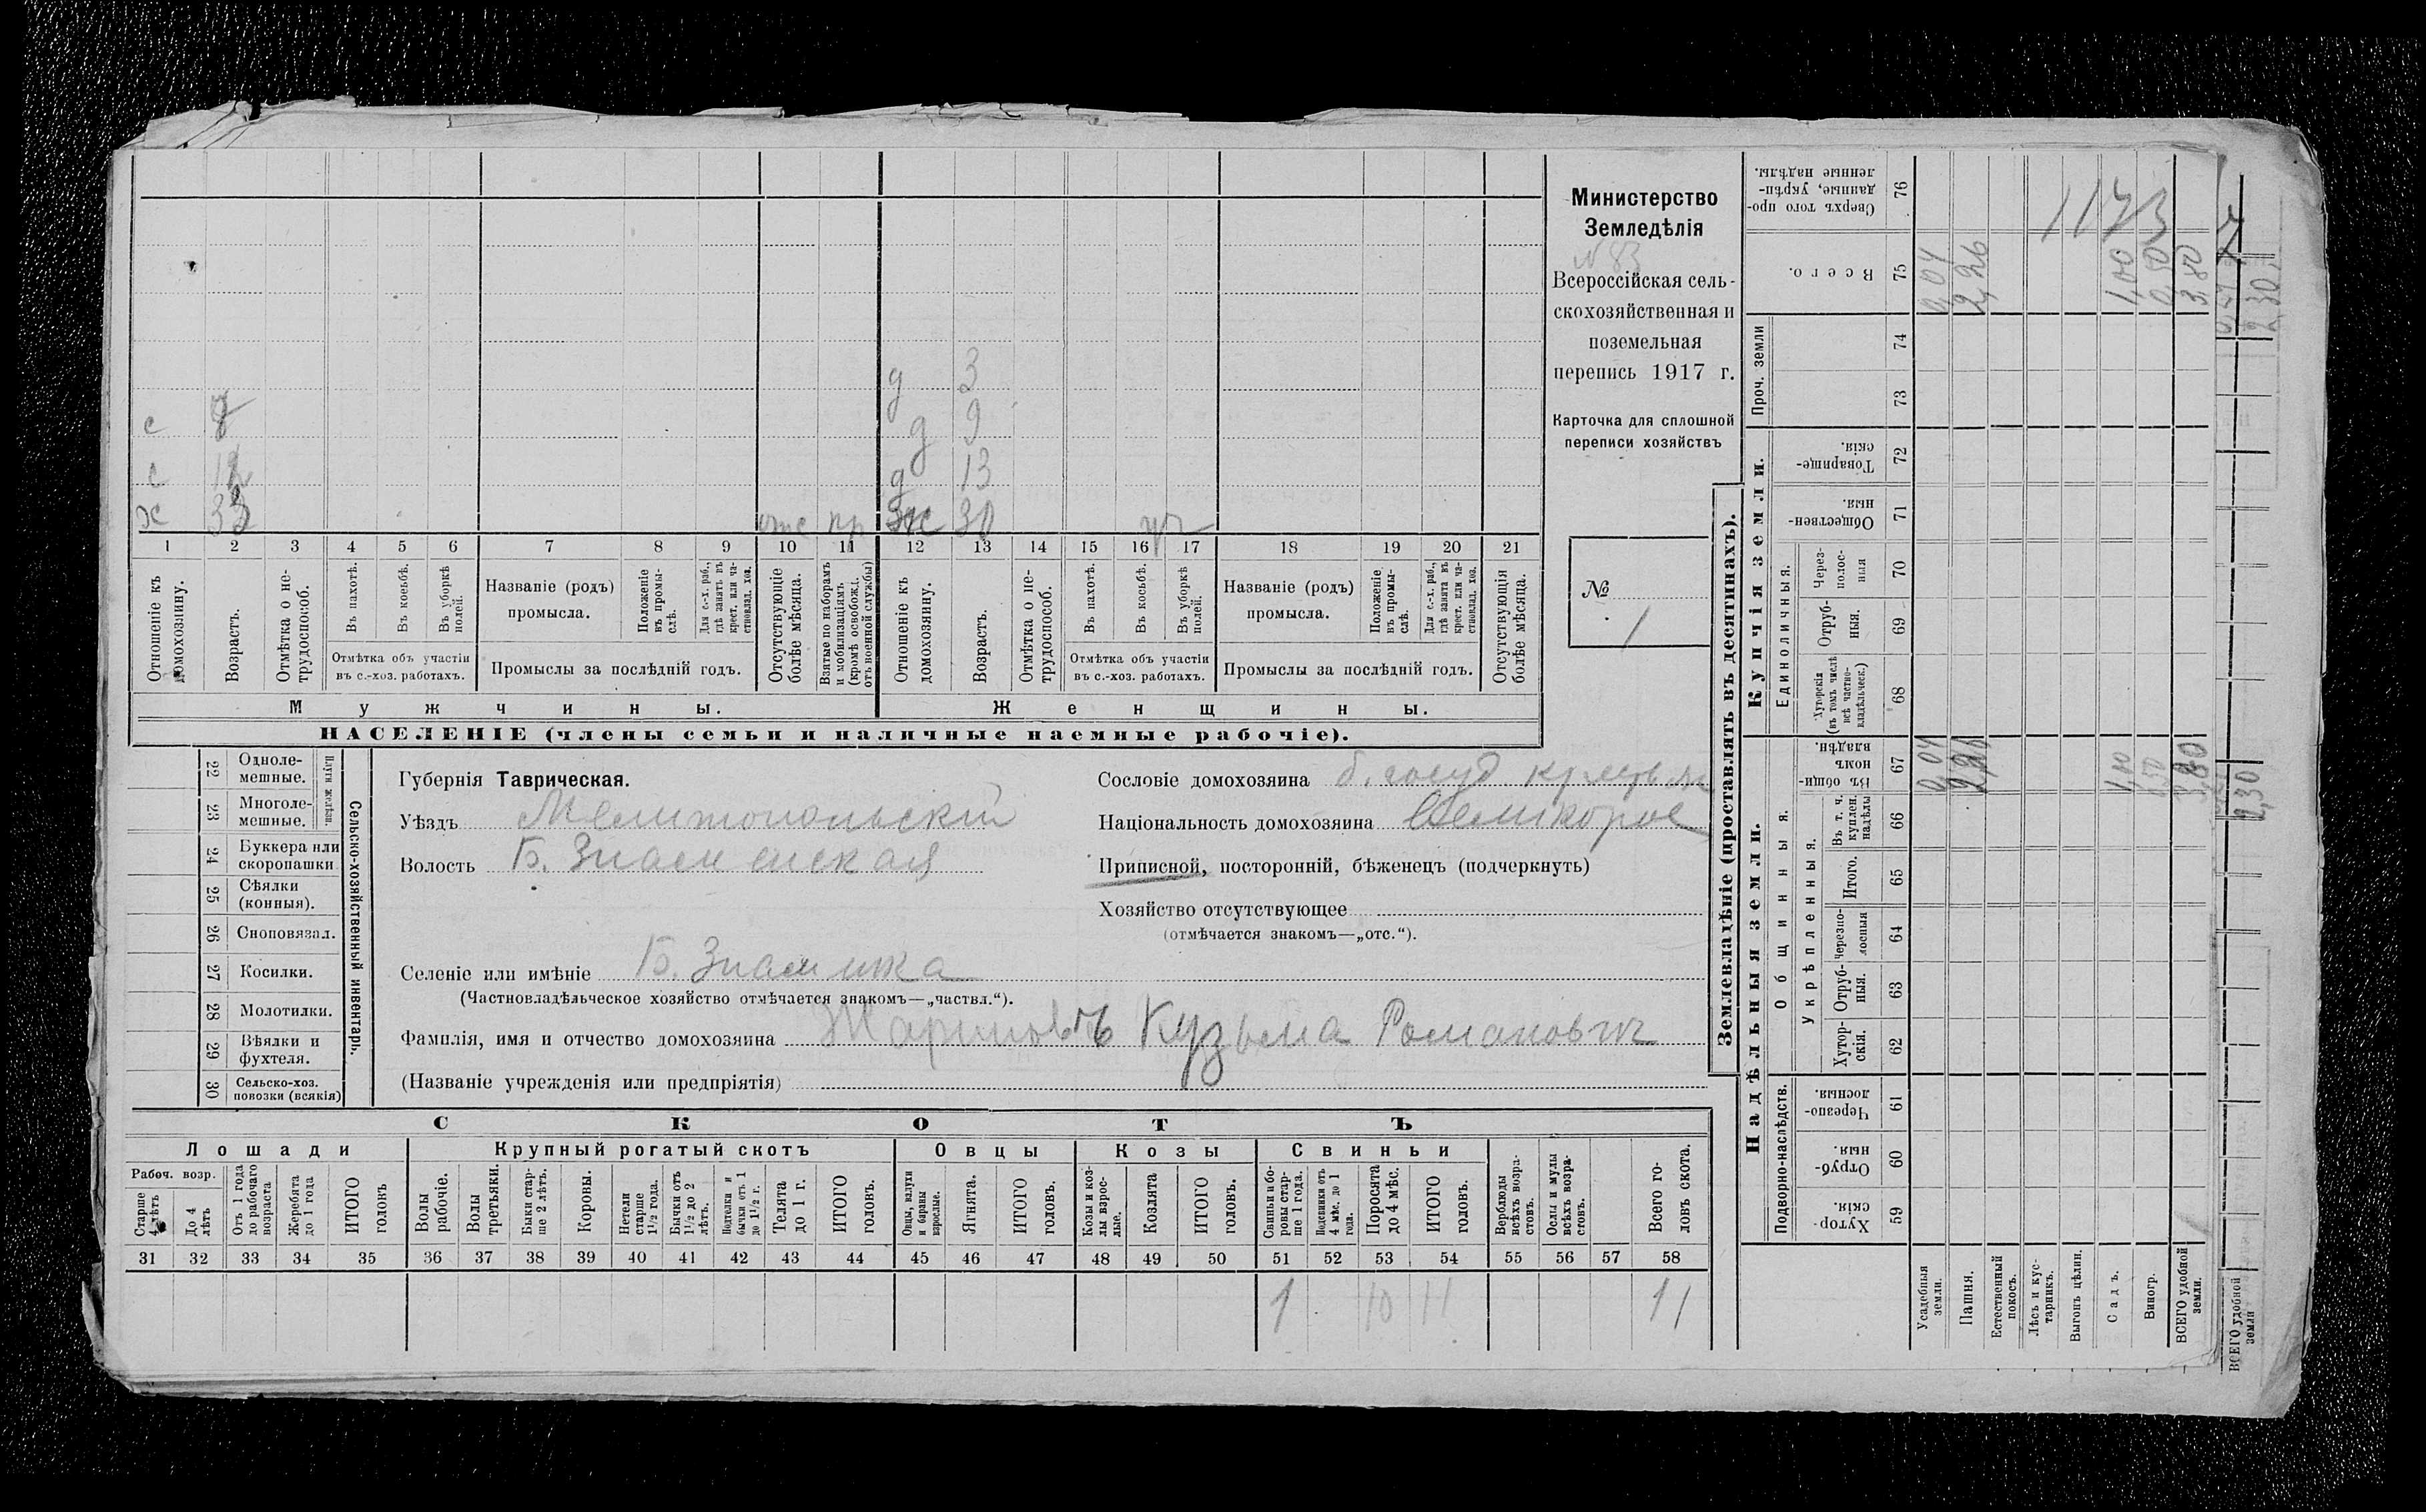 Министерство
Земледѣлія
N 83
Всероссійская сель-
скохозяйственная и
поземельная
перепись 1917 г.
Карточка для сплошной
переписи хозяйствъ
№
1
д 3
с д 9
с 12 д 13
х 33 отс пр ж 30
1 2 3 4 5 6 7 8 9 10 11 12 13 14 15 16 17 18 19 20 21
Отношеніе къ домохозяину.
Возрастъ.
Отмѣтка о не-трудоспособ.
Въ пахотѣ.
Въ косьбѣ.
Въ уборкѣ полей.
Отмѣтка объ участіи въ с.-хоз. работахъ.
Названіе (родъ) промысла.
Положеніе въ промы-слѣ.
Для с.-х. раб., гдѣ занятъ въ крест. или ча-стновлад. хоз.
Промыслы за послѣдній годъ.
Отсутствующіе болѣе мѣсяца.
Взятые по наборамъ и мобилизаціямъ (кромѣ освобожд. отъ военной службы)
Отношеніе къ домохозяину.
Возрастъ.
Отмѣтка о не-трудоспособ.
Въ пахотѣ.
Въ косьбѣ.
Въ уборкѣ полей.
Отмѣтка объ участіи въ с.-хоз. работахъ.
Названіе (родъ) промысла.
Положеніе въ промы-слѣ.
Для с.-х. раб., гдѣ занята въ крест. или ча-стновлад. хоз.
Промыслы за послѣдній годъ.
Отсутствующія болѣе мѣсяца.
Мужчины. Женщины.
НАСЕЛЕНІЕ (члены семьи и наличные наемные рабочіе).
Сельско-хозяйственный инвентарь.
Плуги желѣзн.
22 Однолемешные.
23 Многолемешные.
24 Буккера или скоропашки
25 Сѣялки (конныя).
26 Сноповязал.
27 Косилки.
28 Молотилки.
29 Вѣялки и фухтеля.
30 Сельско-хоз. повозки (всякія)
Губернія Таврическая.
Уѣздъ Мелитопольскій
Волость Б. Знаменская
Селеніе или имѣніе Б. Знаменка
(Частновладѣльческое хозяйство отмѣчается знакомъ—„частвл.“).
Фамилія, имя и отчество домохозяина Жариновъ Кузьма Романович
(Названіе учрежденія или предпріятія)
Сословіе домохозяина б. госуд.
Національность домохозяина Великорос
Приписной, посторонній, бѣженецъ (подчеркнуть)
Хозяйство отсутствующее
(отмѣчается знакомъ—„отс.“).
СКОТЪ
Лошади Крупный рогатый скотъ Овцы Козы Свиньи
Рабоч. возр.
Старше 4 лѣтъ
До 4 лѣтъ
Отъ 1 года до рабочаго возраста
Жеребята до 1 года
ИТОГО головъ
Волы рабочіе.
Волы третьяки.
Быки стар-ше 2 лѣтъ.
Коровы.
Нетели старше 1½ года.
Бычки отъ 1½ до 2 лѣтъ.
Подтелки и бычки отъ 1 до 1½ г.
Телята до 1 г.
ИТОГО головъ.
Овцы, валухи и бараны взрослые.
Ягнята.
ИТОГО головъ.
Козы и коз-лы взрос-лые.
Козлята
ИТОГО головъ.
Свиньи и бо-ровы стар-ше 1 года.
Подсвинки отъ 4 мѣс. до 1 года.
Поросята до 4 мѣс.
ИТОГО головъ.
Верблюды всѣхъ возра-стовъ.
Ослы и мулы всѣхъ возра-стовъ.
Всего го-ловъ скота.
31 32 33 34 35 36 37 38 39 40 41 42 43 44 45 46 47 48 49 50 51 52 53 54 55 56 57 58
1 10 11 11
Землевладѣніе (проставлять въ десятинахъ).
Надѣльныя земли.
Купчія земли.
Проч. земли
Подворно-наслѣдств.
Общинныя.
Укрѣпленныя.
Единоличныя.
Сверхъ того про-данные, укрѣп-ленные надѣлы. 76
Всего. 75
74
73
Товарище-скія. 72
Обществен-ныя. 71
Через-полос-ныя 70
Отруб-ныя. 69
Хуторскія (въ томъ числѣ всѣ частно-владѣльческ.) 68
Въ общин-номъ владѣн. 67
Въ т. ч. куплен. надѣлы 66
Итого. 65
Черезпо-лосныя 64
Отруб-ныя. 63
Хутор-скія. 62
Черезпо-лосныя. 61
Отруб-ныя. 60
Хутор-скія. 59
Усадебныя земли. 0,04 0,04
Пашня. 2,26 2,26
Естественный покосъ.
Лѣсъ и кус-тарникъ.
Выгонъ цѣлин.
Садъ. 1,00 1,00
Виногр. 0,50 0,50
ВСЕГО удобной земли. 3,80 3,80
1173
ВСЕГО удобной земли 2,30 2,30